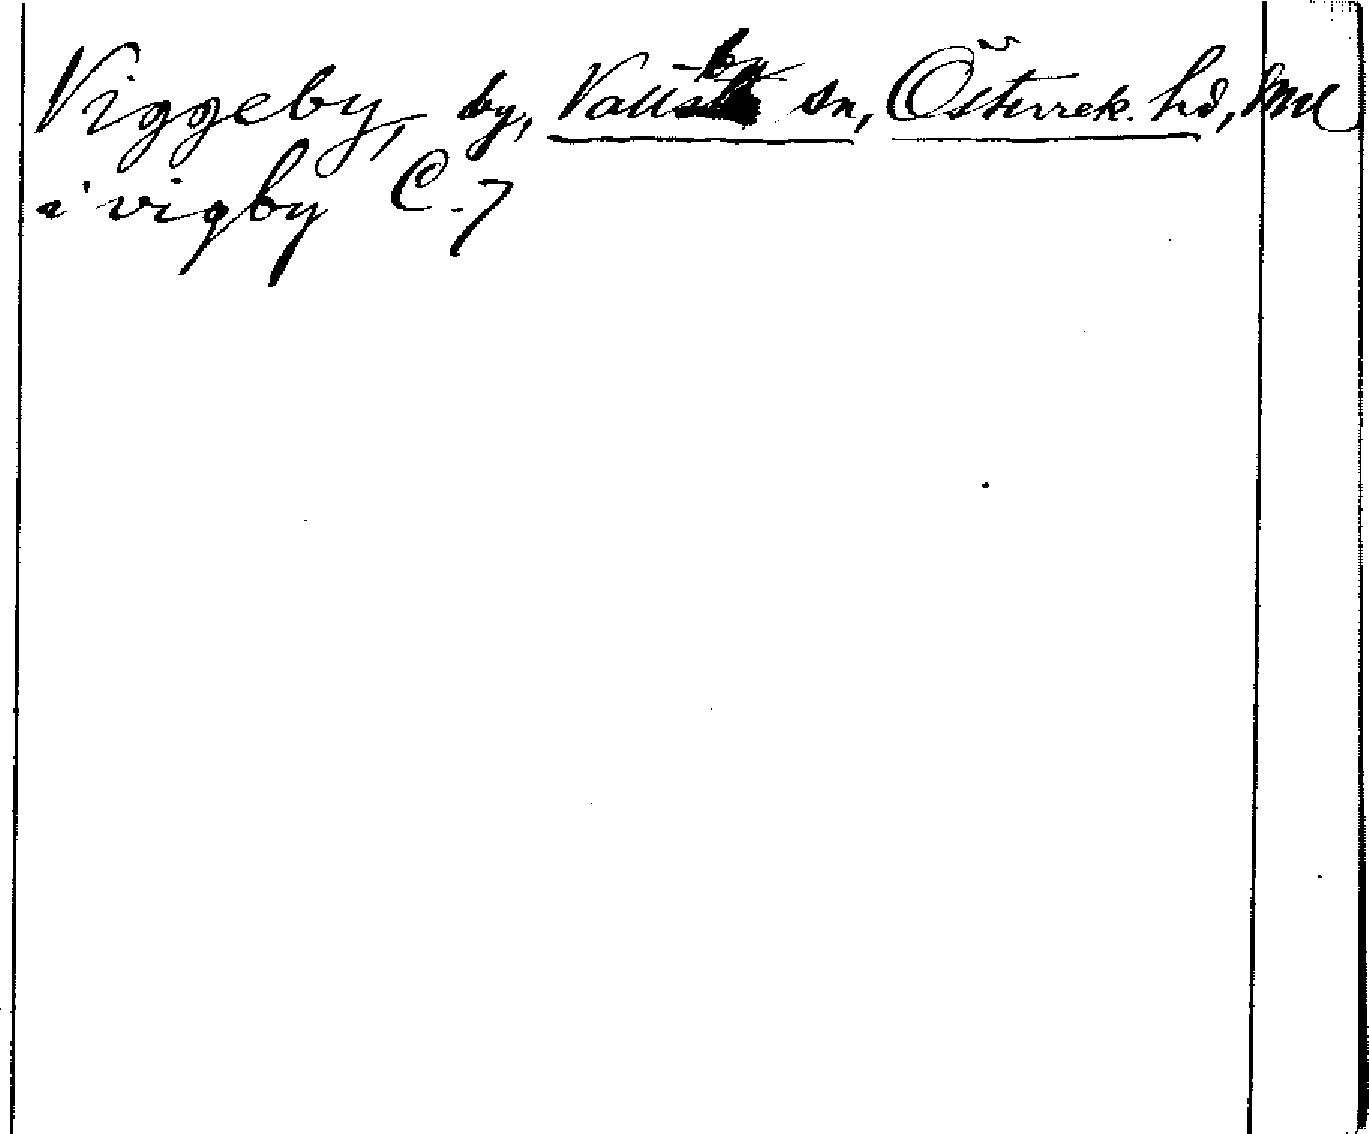 Viggeby, by, Vallby sn, Österrek. hd, Ml
i vigby C. 7